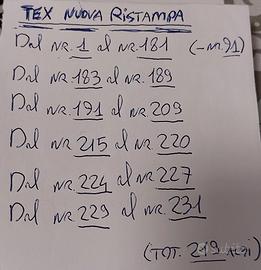 TEX NUOVA RISTAMPA
Dal NR. 1 al NR. 181 (- NR. 91)
Dal NR. 183 al NR. 189
Dal NR. 191 al NR. 209
Dal NR. 215 al NR. 220
Dal NR. 224 al NR. 227
Dal NR. 229 al NR. 231
(TOT. 219